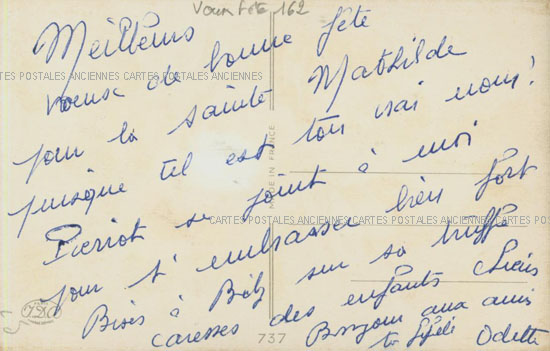 Vœux Fête 162
Meilleurs
vœux de bonne fête
CARTES POSTALES ANCIENNES CARTES POSTALES ANCIENNES
pour la sainte Mathilde
puisque tel est ton vrai nom!
MADE IN FRANCE
Pierrot se joint à moi
CARTES POSTALES ANCIENNES CARTES POSTALES ANCIENNES
pour t'embrasser bien fort
Bises à sur sa truffe
caresses des enfants
Bonjour aux amis
737
ta Odette